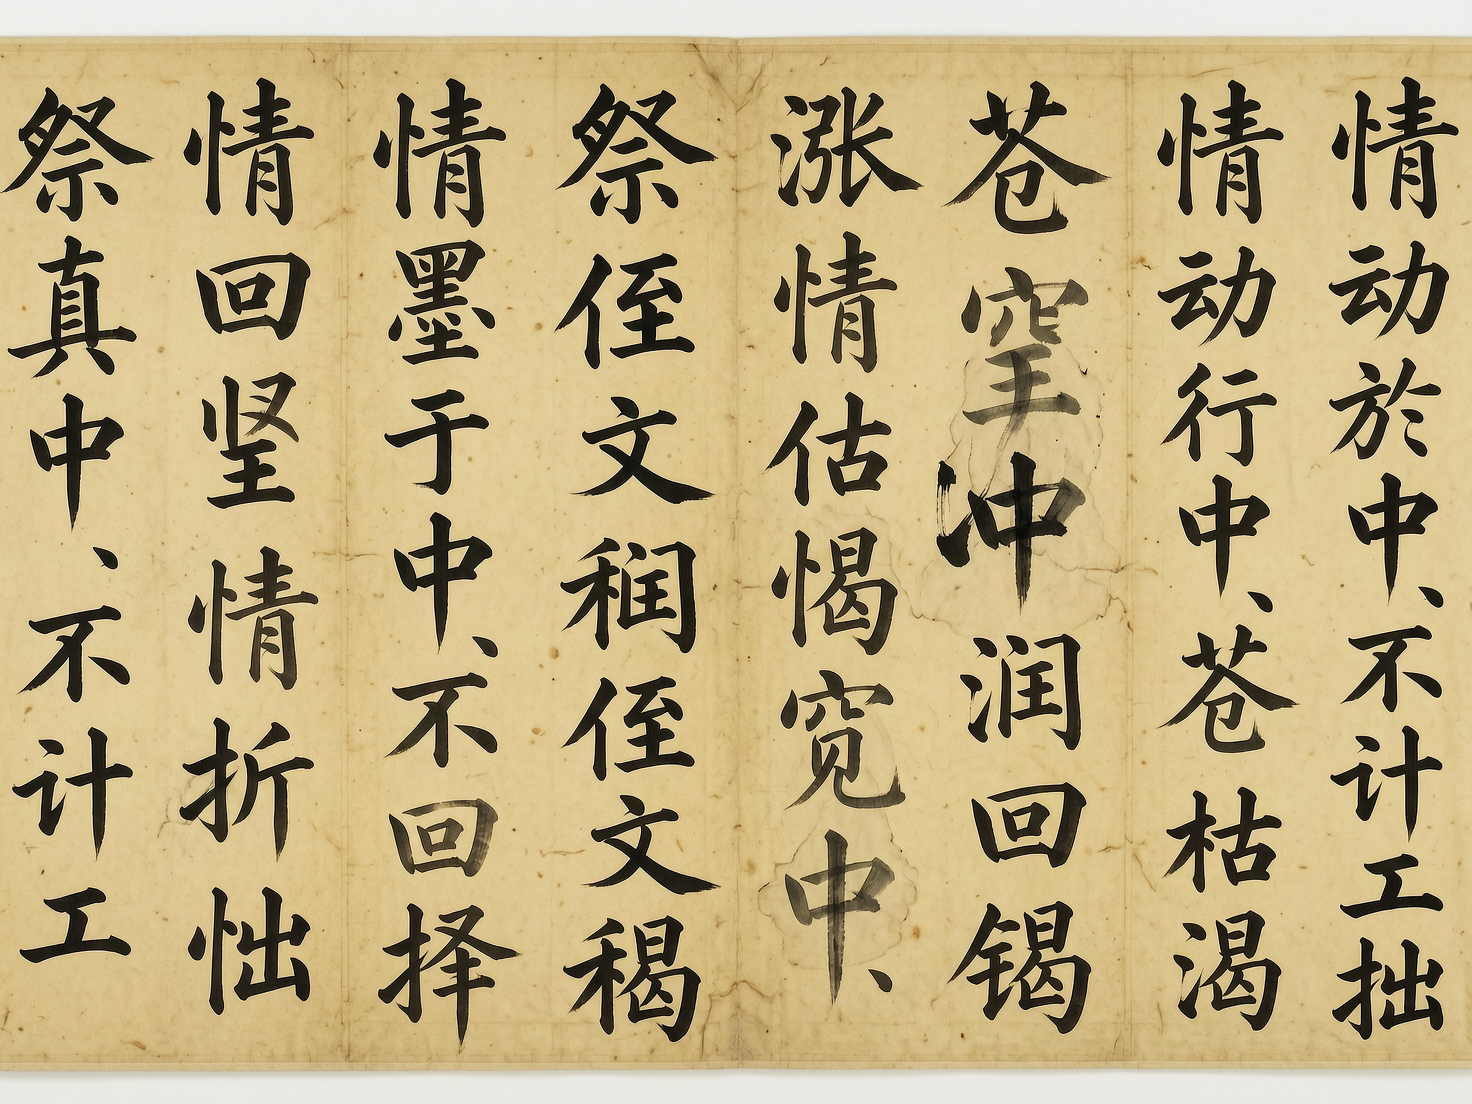 情动於中、不计工拙
情动行中、苍枯渴
苍冲润回
涨情估愒中、
祭侄文侄文
情墨于中、不回择
情回坚情折
祭真中、不计工